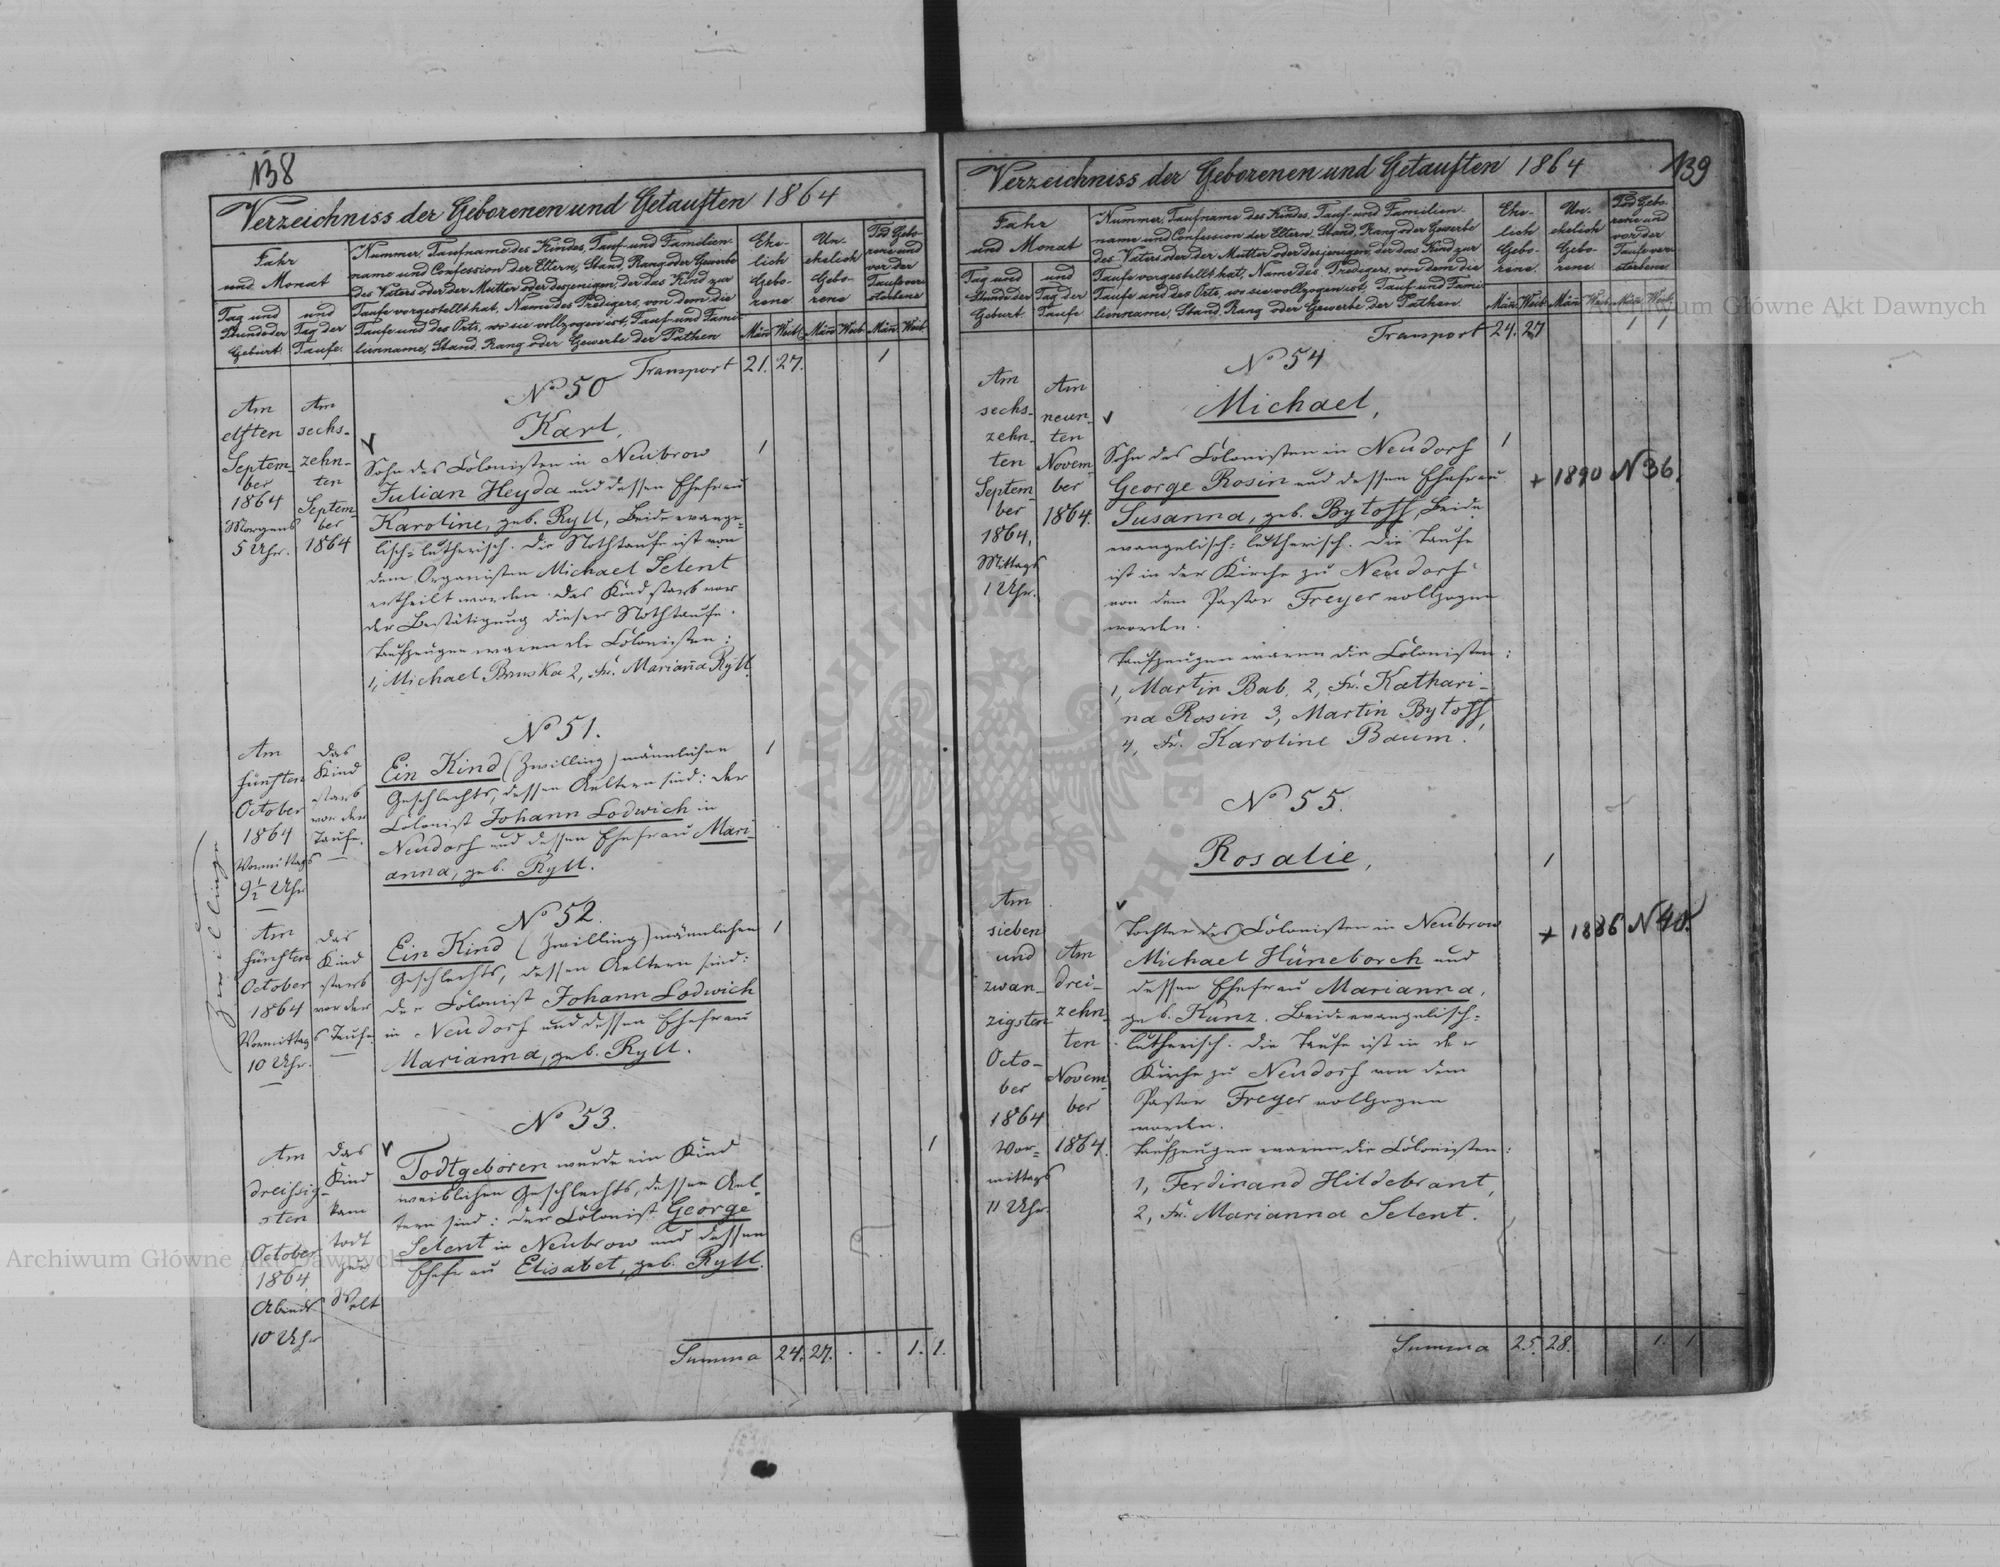 138
Verzeichniss der Geborenen und Getauften 1864
Jahr und Monat
Tag und Stunde der Geburt.
und Tag der Taufe.
Nummer, Taufname des Kindes, Tauf- und Familien-
name und Confession der Eltern, Stand, Rang oder Gewerbe
des Vaters oder der Mutter oder desjenigen, der das Kind zur
Taufe vorgestellt hat, Name des Predigers, von dem die
Taufe und des Orts, wo sie vollzogen ist, Tauf und Fami-
lienname, Stand, Rang oder Gewerbe der Pathen
Ehe-
lich
Gebo-
rene
Un-
ehelich
Gebo-
rene
Tod Gebo-
rene und
vor der
Taufe ver-
storbene
Män. Weib. Män. Weib. Män. Weib.
Transport 21. 27. 1
No 50
Am
elften
Septem-
ber
1864
Morgens
5 Uhr.
Am
sechs-
zehn-
ten
Septem-
ber
1864
Karl,
Sohn des Colonisten in Neubrow 1
Julian Heyda und dessen Ehefrau
Karoline, geb. Ryll, Beide evange-
lisch-lutherisch. Die Nothtaufe ist von
dem Organisten Michael Selent
ertheilt worden. Das Kind starb vor
der Bestätigung dieser Nothtaufe.
Taufzeugen waren die Colonisten:
1, Michael Bruska 2, Fr. Marianna Ryll.
No 51.
Am
fünften
October
1864
Vormittags
9½ Uhr
Das
Kind
starb
vor der
Taufe.
Ein Kind (Zwilling) männlichen 1
Geschlechts, dessen Aeltern sind: der
Colonist Johann Lodwich in
Neudorf und dessen Ehefrau Mari-
anna, geb. Ryll.
Zwillinge
No 52.
Am
fünften
October
1864
Vormittags
10 Uhr.
Das
Kind
starb
vor der
Taufe
Ein Kind (Zwilling) männlichen 1
Geschlechts, dessen Aeltern sind:
der Colonist Johann Lodwich
in Neudorf und dessen Ehefrau
Marianna, geb. Ryll.
No 53.
Am
dreissig-
sten
October
1864
Abends
10 Uhr
Das
Kind
kam
todt
zur
Welt
Todtgeboren wurde ein Kind 1
weiblichen Geschlechts, dessen Ael-
tern sind: der Colonist George
Selent in Neubrow und dessen
Ehefrau Elisabet, geb. Ryll.
Summa 24. 27. . . 1. 1.
139
Verzeichniss der Geborenen und Getauften 1864
Jahr
und Monat
Tag und
Stunde der
Geburt
und
Tag der
Taufe
Nummer, Taufname des Kindes, Tauf- und Familien-
name und Confession der Eltern, Stand, Rang oder Gewerbe
des Vaters oder der Mutter oder desjenigen, der das Kind zur
Taufe vorgestellt hat, Name des Predigers, von dem die
Taufe und des Orts, wo sie vollzogen ist, Tauf und Fami-
lienname, Stand, Rang oder Gewerbe der Pathen.
Ehe-
lich
Gebo-
rene.
Un-
ehelich
Gebo-
rene.
Tod Gebo-
rene und
vor der
Taufe ver-
storbene
Män. Weib. Män. Weib. Män. Weib.
Transport 24. 27 1 1
No 54
Am
sechs-
zehn-
ten
Septem-
ber
1864,
Mittags
1 Uhr.
Am
neun-
ten
Novem-
ber
1864.
Michael,
Sohn des Colonisten in Neudorf 1
George Rosin und dessen Ehefrau + 1890 N 36.
Susanna, geb. Bytoff, Beide
evangelisch-lutherisch. Die Taufe
ist in der Kirche zu Neudorf
von dem Pastor Freyer vollzogen
worden.
Taufzeugen waren die Colonisten:
1, Martin Bab, 2, Fr. Kathari-
na Rosin 3, Martin Bytoff,
4, Fr. Karoline Baum.
No 55.
Am
sieben
und
zwan-
zigsten
Octo-
ber
1864
Vor-
mittags
11 Uhr
Am
drei-
zehn-
ten
Novem-
ber
1864.
Rosalie, 1
Tochter des Colonisten in Neubrow + 1886 N 40.
Michael Hüneborch und
dessen Ehefrau Marianna,
geb. Kunz. Beide evangelisch-
lutherisch. Die Taufe ist in der
Kirche zu Neudorf von dem
Pastor Freyer vollzogen
worden.
Taufzeugen waren die Colonisten:
1, Ferdinand Hildebrant,
2, Fr. Marianna Selent.
Summa 25. 28. 1. 1
Archiwum Główne Akt Dawnych
Archiwum Główne Akt Dawnych